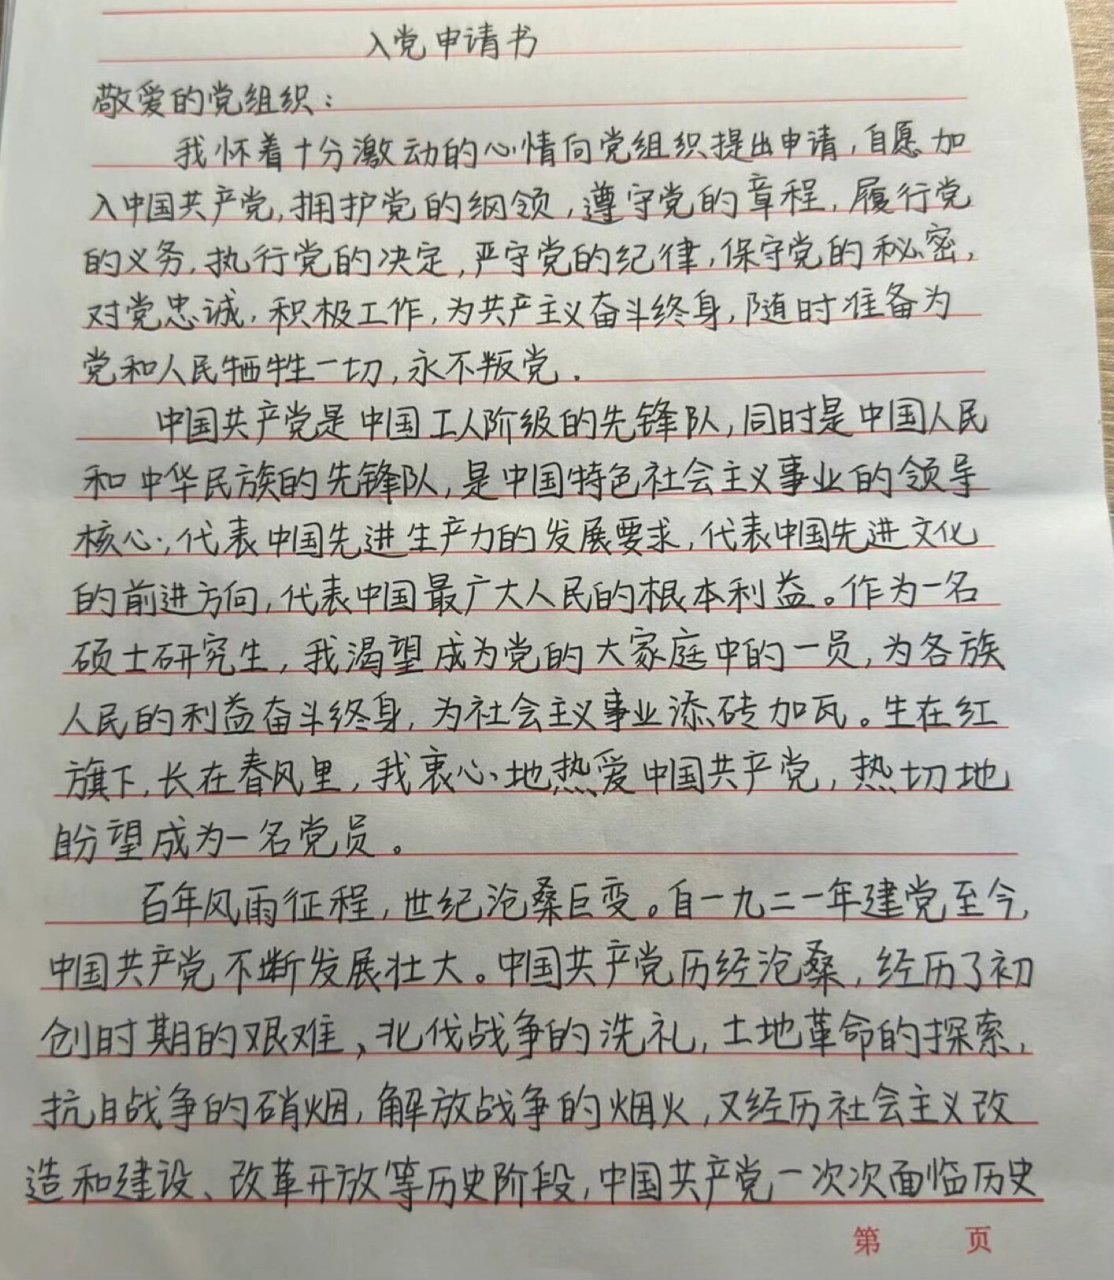 入党申请书
敬爱的党组织：
我怀着十分激动的心情向党组织提出申请，自愿加
入中国共产党，拥护党的纲领，遵守党的章程，履行党
的义务，执行党的决定，严守党的纪律，保守党的秘密，
对党忠诚，积极工作，为共产主义奋斗终身，随时准备为
党和人民牺牲一切，永不叛党.
中国共产党是中国工人阶级的先锋队，同时是中国人民
和中华民族的先锋队，是中国特色社会主义事业的领导
核心，代表中国先进生产力的发展要求，代表中国先进文化
的前进方向，代表中国最广大人民的根本利益。作为一名
硕士研究生，我渴望成为党的大家庭中的一员，为各族
人民的利益奋斗终身，为社会主义事业添砖加瓦。生在红
旗下，长在春风里，我衷心地热爱中国共产党，热切地
盼望成为一名党员。
百年风雨征程，世纪沧桑巨变。自一九二一年建党至今，
中国共产党不断发展壮大。中国共产党历经沧桑，经历了初
创时期的艰难、北伐战争的洗礼，土地革命的探索，
抗日战争的硝烟，解放战争的烟火，又经历社会主义改
造和建设、改革开放等历史阶段，中国共产党一次次面临历史
第 页